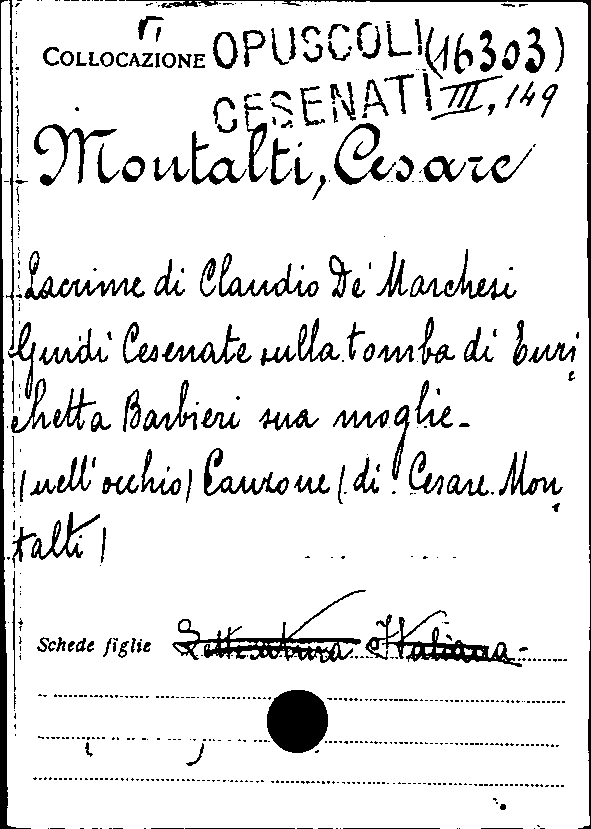 COLLOCAZIONE OPUSCOLI (16303)
CESENATI III, 149
Montalti, Cesare
Lacrime di Claudio De' Marchesi
Guidi Cesenate sulla tomba di Enri
chetta Barbieri sua moglie-
(nell'occhio) Canzone (di Cesare Mon
talti)
Schede figlie Letteratura Italiana-